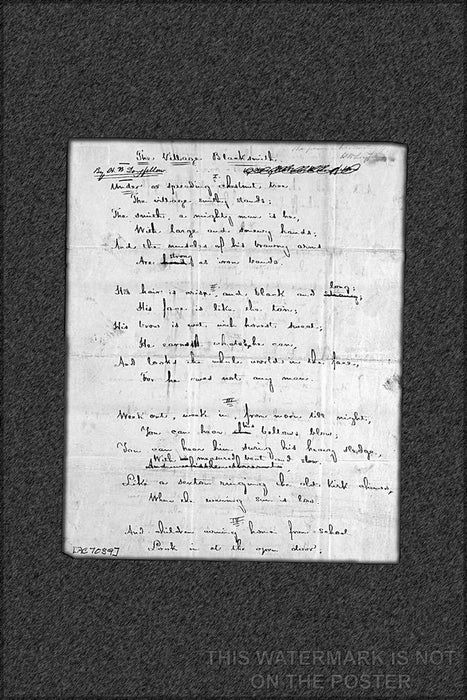 The Village Blacksmith.
By H. W. Longfellow
I
Under a spreading chestnut tree
The village smithy stands;
The smith, a mighty man is he,
With large and sinewy hands;
And the muscles of his brawny arms
strong
Are hard as iron bands.
II
long;
His hair is crisp, and black and
His face is like the tan;
His brow is wet with honest sweat,
He earns whate'er he can,
And looks the whole world in the face,
For he owes not any man.
III
Week out, week in, from morn till night,
You can hear his bellows blow;
You can hear him swing his heavy sledge,
With measured beat and slow,
Like a sexton ringing the old kirk chimes,
When the evening sun is low.
IIII
And children coming home from school
Look in at the open door;
THIS WATERMARK IS NOT
ON THE POSTER